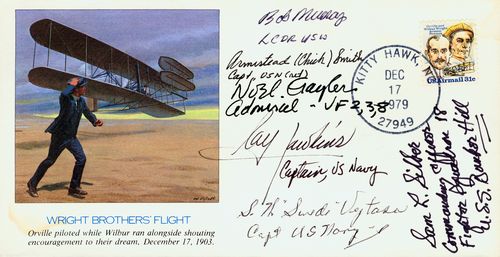 Bob Murray
LCDR USN
Armistead (Chick) Smith
Capt, USN (ret)
Noel Gayler
Admiral VF 2,3,8
Ray Hawkins
Captain US Navy
S. W. "Swede" Vejtasa
Capt US Navy
Sam L. Silber
Commanding Officer
Fighting Squadron 18
U.S.S. Bunker Hill
KITTY HAWK, N
DEC
17
1979
27949
USAirmail 31c
WRIGHT BROTHERS' FLIGHT
Orville piloted while Wilbur ran alongside shouting
encouragement to their dream. December 17, 1903.